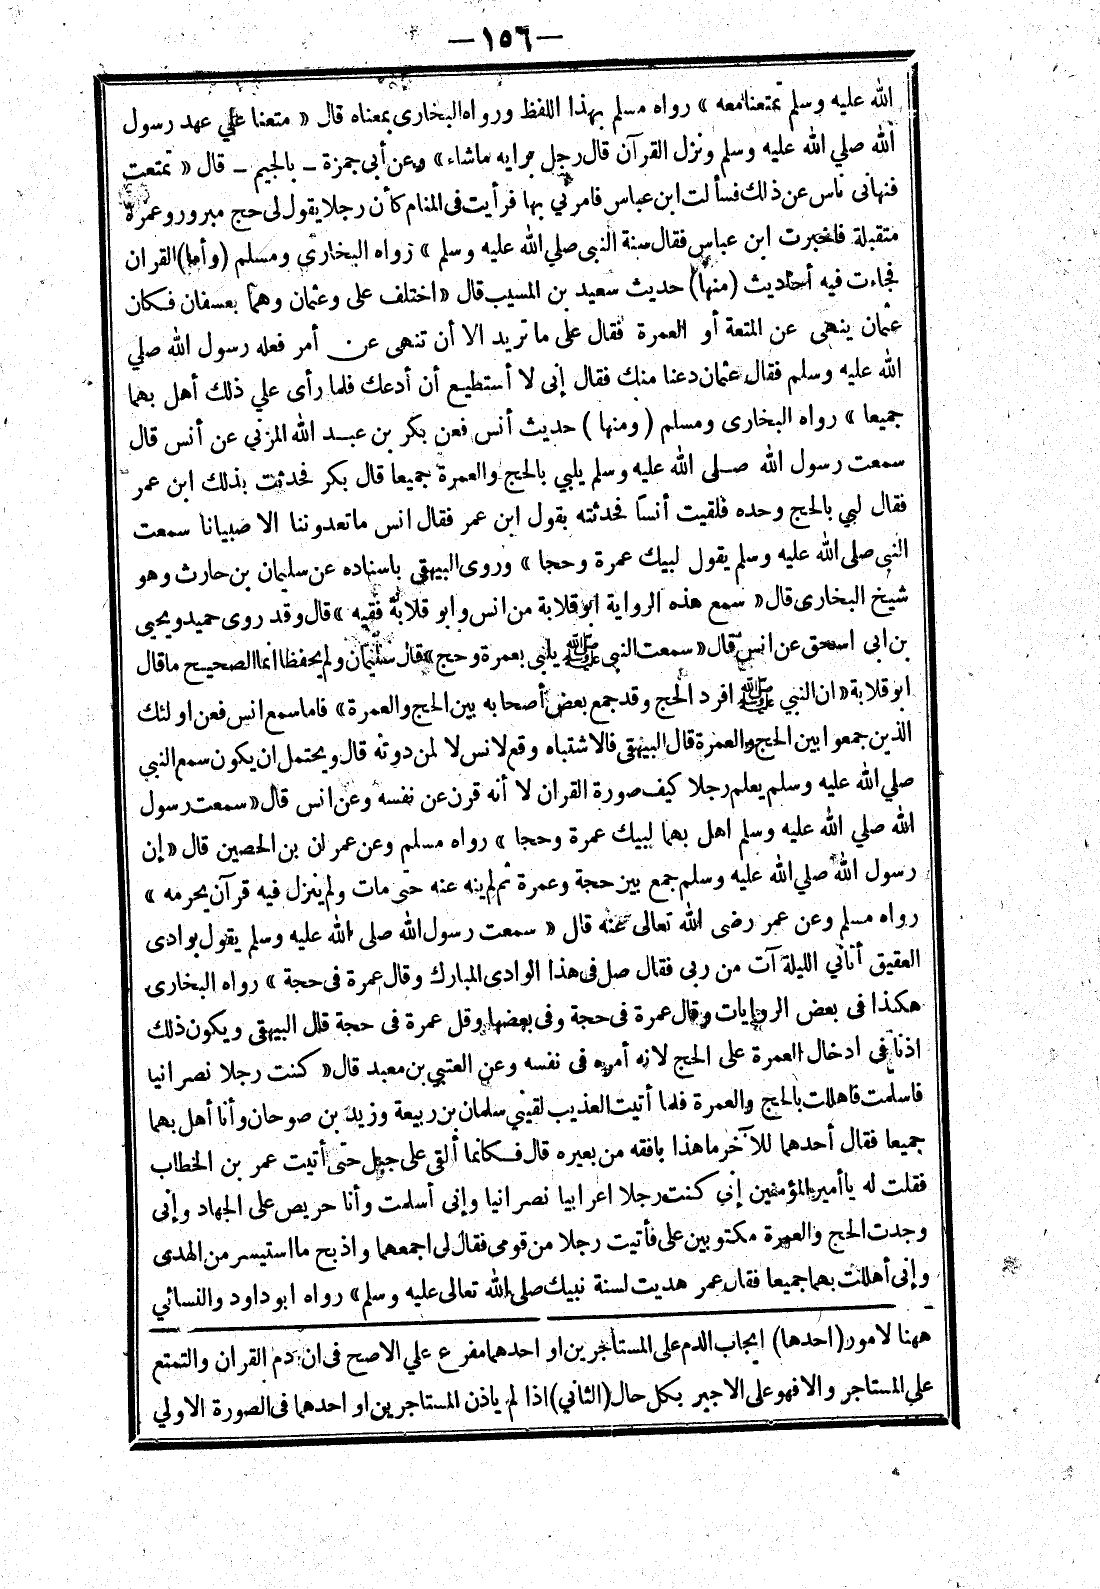 — ١٥٦ —
الله عليه وسلم تمتعنا معه » رواه مسلم بهذا اللفظ ورواه البخارى بمعناه قال « متعنا علي عهد رسول
الله صلي الله عليه وسلم ونزل القرآن قال رجل برايه ماشاء » وعن أبى جمزة ـ بالجيم ـ قال « تمتعت
فنهانى ناس عن ذلك فسألت ابن عباس فامرني بها فرأيت فى المنام كأن رجلا يقول لى حج مبرور وعمرة
متقبلة فاخبرت ابن عباس فقال سنة النبى صلي الله عليه وسلم » رواه البخارى ومسلم (وأما) القران
فجاءت فيه أحاديث (منها) حديث سعيد بن المسيب قال « اختلف على وعثمان وهما بعسفان فكان
عثمان ينهى عن المتعة أو العمرة فقال على ما تريد الا أن تنهى عن أمر فعله رسول الله صلي
الله عليه وسلم فقال عثمان دعنا منك فقال إنى لا أستطيع أن أدعك فلما رأى علي ذلك أهل بهما
جميعا » رواه البخارى ومسلم ( ومنها ) حديث أنس فعن بكر بن عبد الله المزني عن أنس قال
سمعت رسول الله صلى الله عليه وسلم يلبي بالحج والعمرة جميعا قال بكر فحدثت بذلك ابن عمر
فقال لبي بالحج وحده فلقيت أنسا فحدثته بقول ابن عمر فقال انس ماتعدوننا الا صبيانا سمعت
النبى صلى الله عليه وسلم يقول لبيك عمرة وحجا » وروى البيهقى باسناده عن سليمان بن حارث وهو
شيخ البخارى قال « سمع هذه الرواية ابو قلابة من انس وابو قلابة فقيه » قال وقد روى حميد ويحيى
بن ابى اسحق عن انس قال « سمعت النبى ﷺ يلبى بعمرة وحج » قال سليمان ولم يحفظا انما الصحيح ماقال
ابو قلابة « ان النبي ﷺ افرد الحج وقد جمع بعض أصحابه بين الحج والعمرة » فاما سمع انس فعن اولئك
الذين جمعوا بين الحج والعمرة قال البيهقى فالاشتباه وقع لانس لا لمن دونه قال ويحتمل ان يكون سمع النبي
صلي الله عليه وسلم يعلم رجلا كيف صورة القران لا أنه قرن عن نفسه وعن انس قال « سمعت رسول
الله صلي الله عليه وسلم اهل بهما لبيك عمرة وحجا » رواه مسلم وعن عمران بن الحصين قال « إن
رسول الله صلي الله عليه وسلم جمع بين حجة وعمرة ثم لم ينه عنه حتى مات ولم ينزل فيه قرآن يحرمه »
رواه مسلم وعن عمر رضى الله تعالى عنه قال « سمعت رسول الله صلى الله عليه وسلم يقول بوادى
العقيق أتاني الليلة آت من ربى فقال صل فى هذا الوادى المبارك وقال عمرة فى حجة » رواه البخارى
هكذا فى بعض الروايات وقال عمرة فى حجة وفى بعضها وقل عمرة فى حجة قال البيهقى ويكون ذلك
اذنا فى ادخال العمرة على الحج لانه أمره فى نفسه وعن العتبي بن معبد قال « كنت رجلا نصرانيا
فاسلمت فاهللت بالحج والعمرة فلما أتيت العذيب لقيني سلمان بن ربيعة وزيد بن صوحان وأنا أهل بهما
جميعا فقال أحدهما للآخر ماهذا بافقه من بعيره قال فكانما ألقى على جبل حتى أتيت عمر بن الخطاب
فقلت له يا أمير المؤمنين إنى كنت رجلا اعرابيا نصرانيا وإنى أسلمت وأنا حريص على الجهاد وإنى
وجدت الحج والعمرة مكتوبين على فأتيت رجلا من قومى فقال لى اجمعهما واذبح ما استيسر من الهدى
وإنى أهللت بهما جميعا فقال عمر هديت لسنة نبيك صلى الله تعالى عليه وسلم » رواه ابو داود والنسائي
ههنا لامور (احدها) ايجاب الدم على المستأجرين او احدهما مفرع علي الاصح فى ان دم القران والتمتع
علي المستاجر والا فهو على الاجير بكل حال (الثاني) اذا لم ياذن المستاجرين او احدهما فى الصورة الاولي